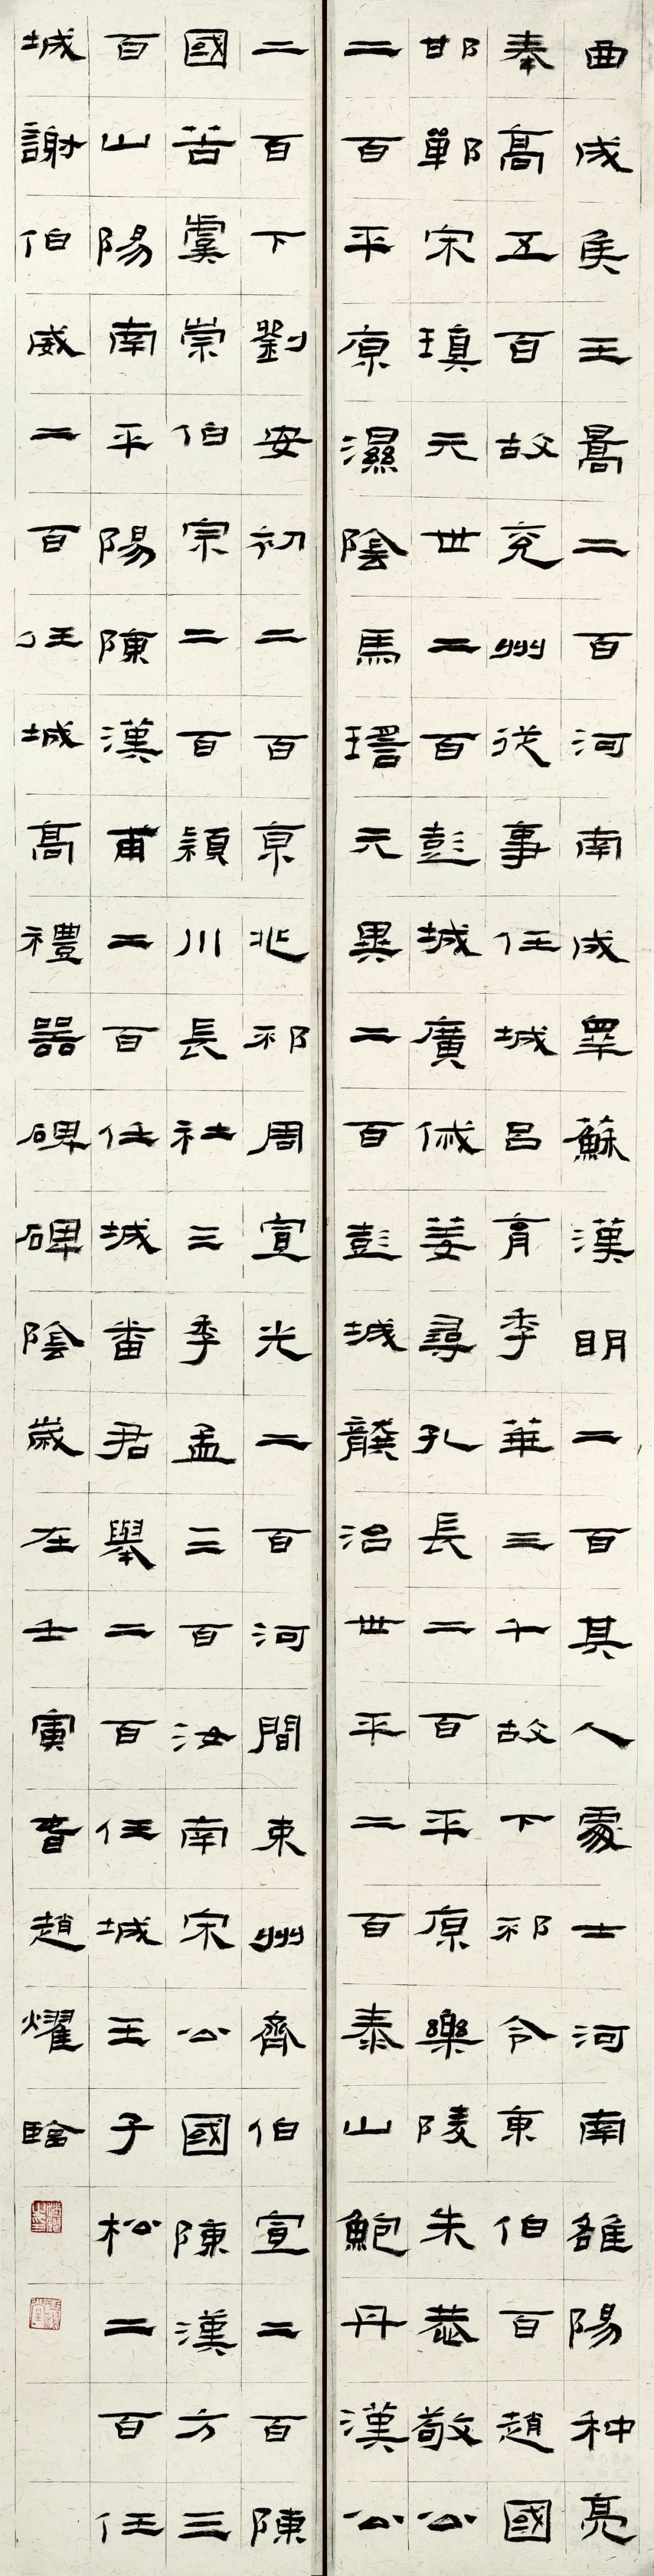 曲成侯王暠二百河南成睪蘇漢明二百其人處士河南雒陽种亮
奉高五百故兗州從事任城呂育季華三千故下邳令東伯百趙國
邯鄲宋瑱元世二百彭城廣俴姜尋孔長二百平原樂陵朱恭敬公
二百平原濕陰馬瑶元異二百彭城龔治世平二百泰山鮑丹漢公
二百下劉安初二百京兆邳周宣光二百河間束州齊伯宣二百陳
國苦虞崇伯宗二百潁川長社三季孟三百汝南宋公國陳漢方三
百山陽南平陽陳漢甫二百任城番君舉二百任城王子松二百任
城謝伯威二百任城高禮器碑碑陰歲在壬寅春趙燿臨